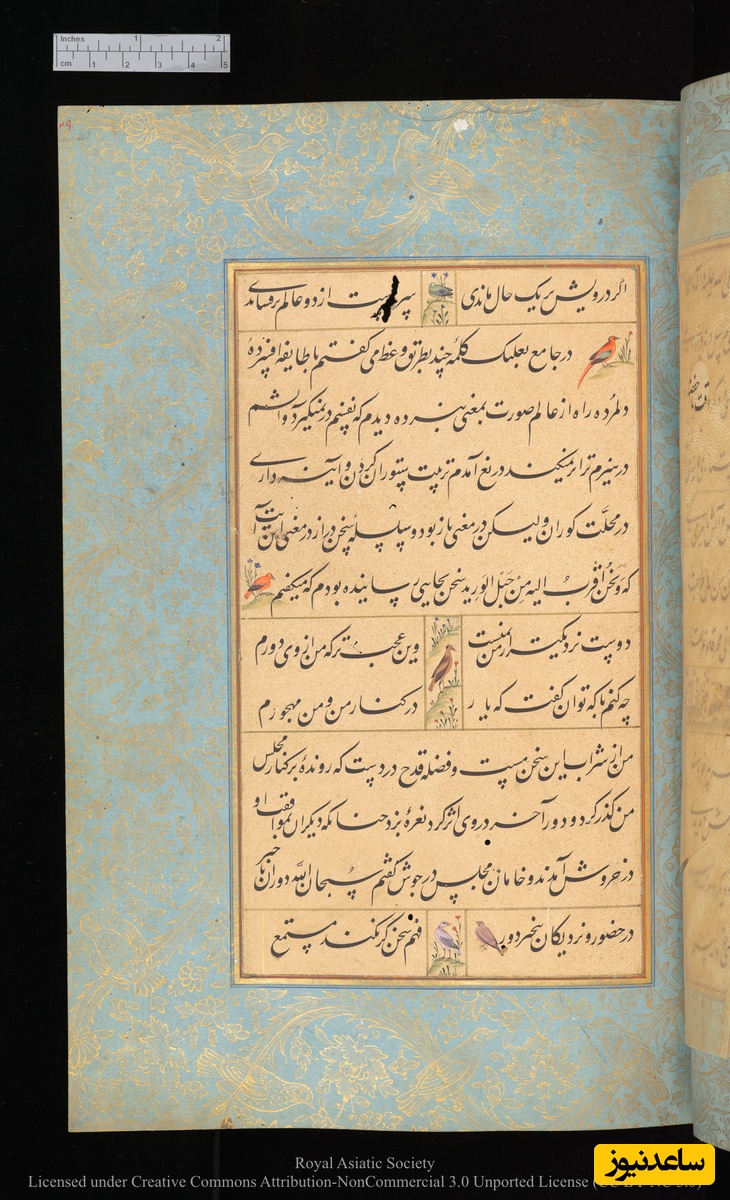 Inches 1 2
cm 1 2 3 4 5
اگر درویش بر یک حال ماندی سر دست از دو عالم برفشاندی
در جامع بعلبک کلمهٔ چند بطریق وعظ می گفتم با طایفهٔ افسرده
دلمرده راه از عالم صورت بمعنی نبرده دیدم که نفسم در نمیگیرد و آتشم
در هیزم تر اثر نمیکند دریغ آمدم تربیت ستوران کردن و آینه داری
در محلت کوران ولیکن در معنی باز بود و سلسلهٔ سخن دراز در معنی این آیت
که وَنَحْنُ اَقْرَبُ الیه مِنْ حَبْلِ الوَرید سخن بجایی رسانیده بودم که میگفتم
دوست نزدیکتر از من بمنست وین عجبتر که من از وی دورم
چه کنم با که توان گفت که یار در کنار من و من مهجورم
من از شراب این سخن مست و فضلهٔ قدح در دست که روندهٔ بر کنار مجلس
من گذر کرد و دور آخر در وی اثر کرد نعرهٔ بزد چنانکه دیگران بموافقت او
در خروش آمدند و خامان مجلس در جوش گفتم سبحان الله دوران باخبر
در حضور و نزدیکان بیخبر دور فهم سخن گر نکند مستمع
Royal Asiatic Society
Licensed under Creative Commons Attribution-NonCommercial 3.0 Unported License
ساعدنیوز